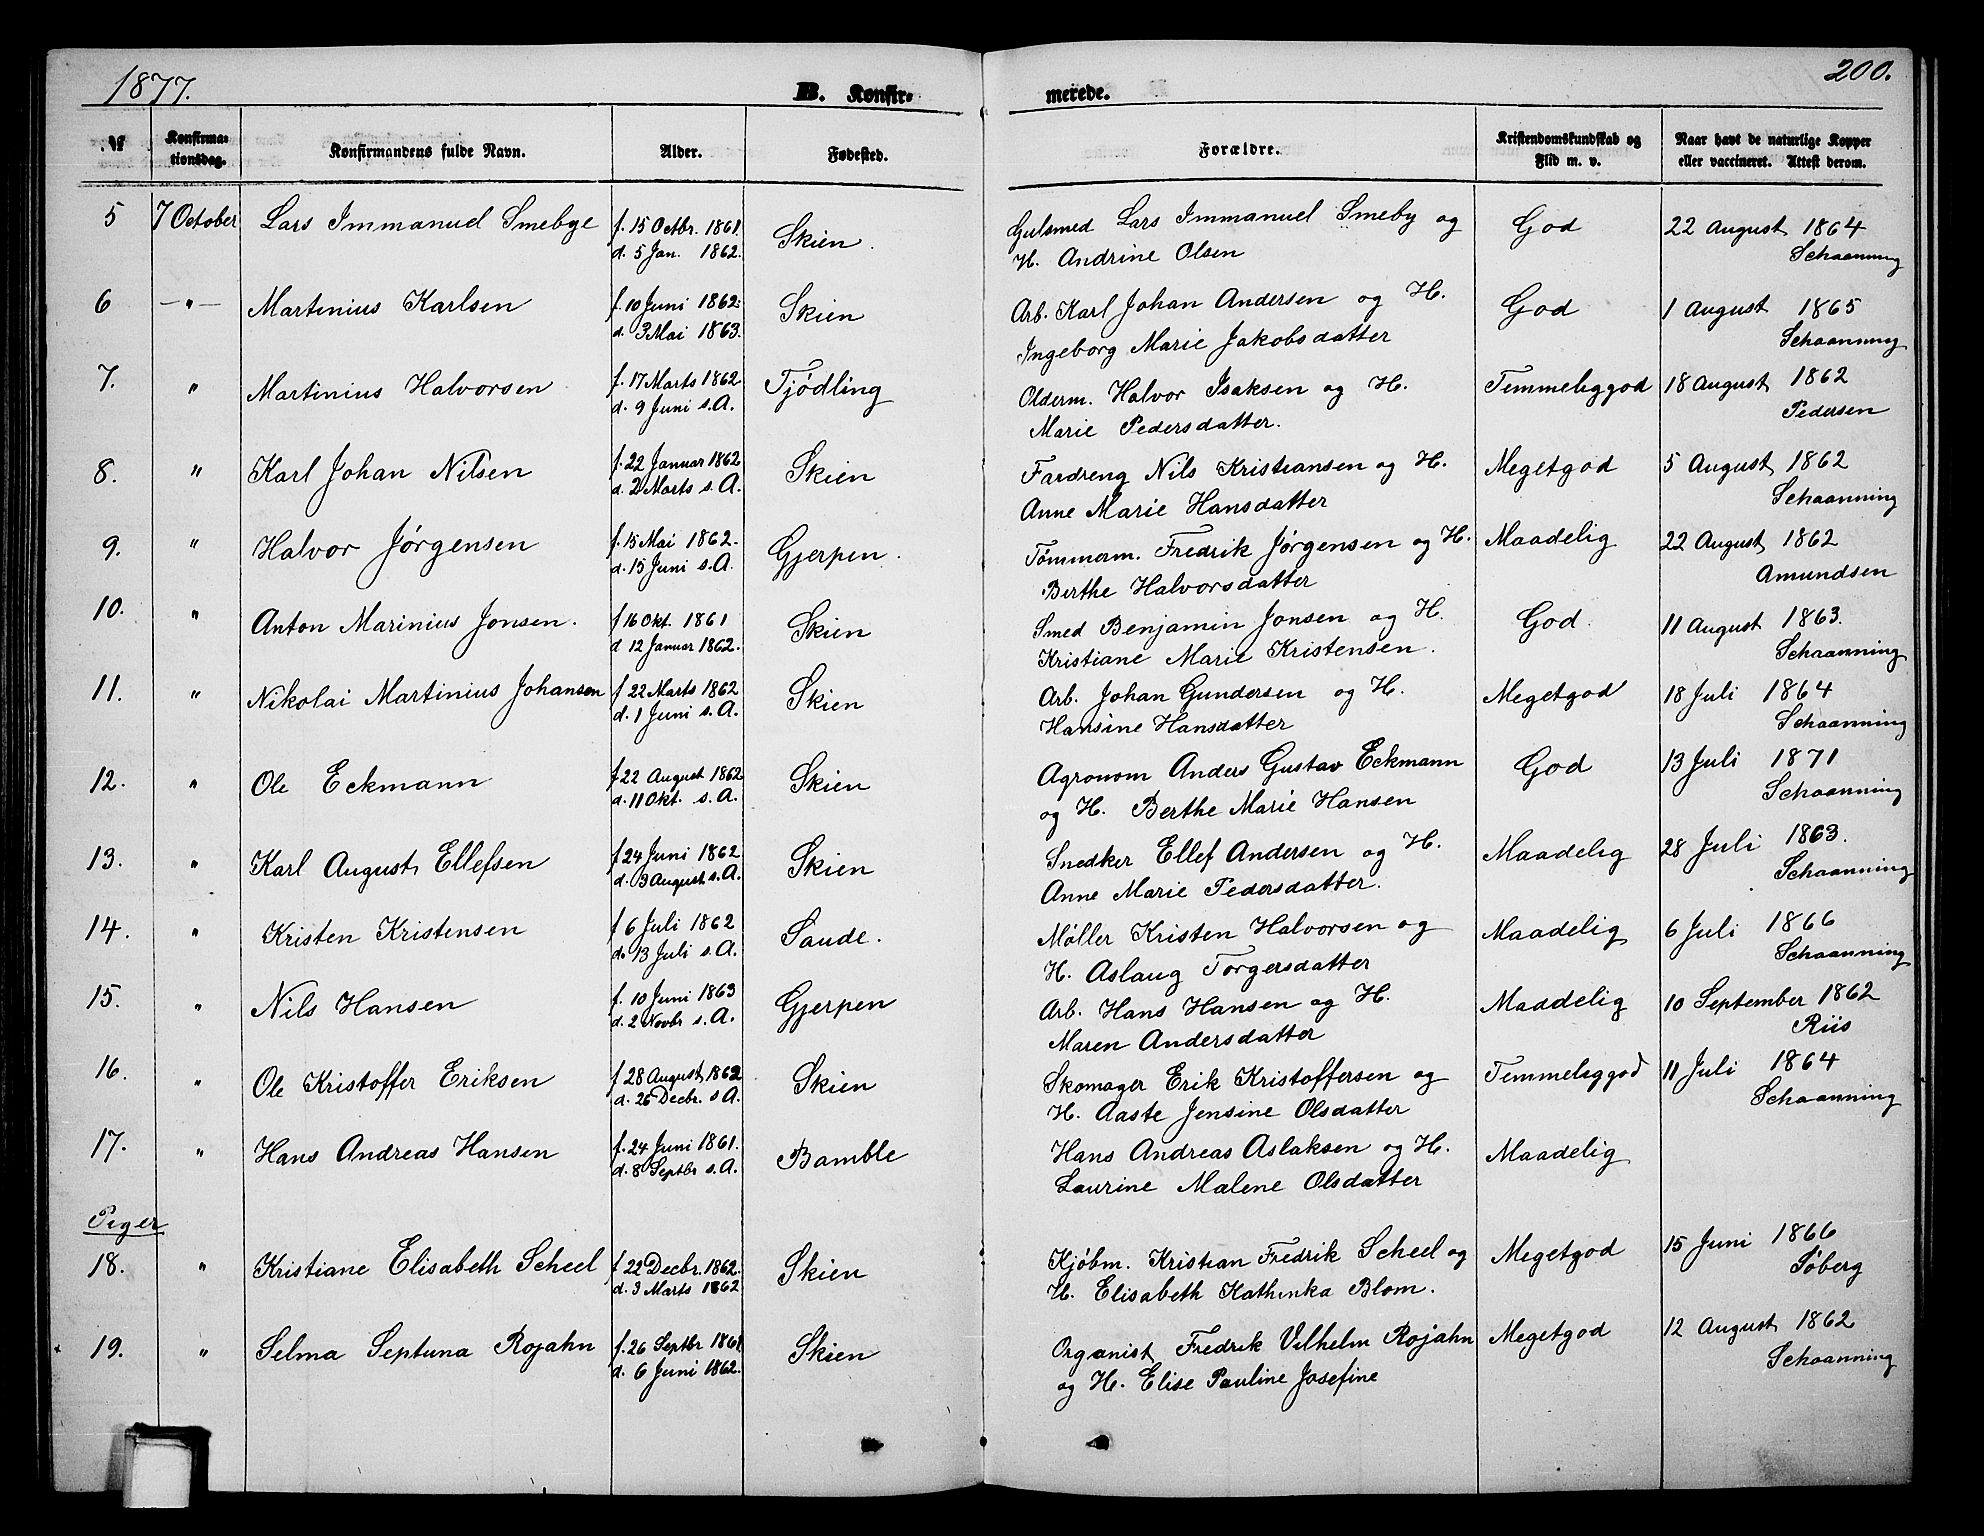 1877.
B. Konfir-
merede.
200.
№
Konfirma-
tionsdag.
Konfirmandens fulde Navn.
Alder.
Fødested.
Forældre.
Kristendomskundskab og
Flid m. v.
Naar havt de naturlige Kopper
eller vaccineret. Attest derom.
5 7 October Lars Immanuel Smebye f. 15 Octbr. 1861. Skien. Gulsmed Lars Immanuel Smeby og God 22 August 1864
d. 5 Jan. 1862. H. Andrine Olsen Schaanning
6 —„— Martinius Karlsen f. 10 Juni 1862. Skien Arb. Karl Johan Andersen og H. God 1 August 1865
d. 3 Mai 1863. Ingeborg Marie Jakobsdatter Schaanning
7. „ Martinius Halvorsen f. 17 Marts 1862 Tjödling Olderm. Halvor Isaksen og H. Temmeliggod 18 August 1862
d. 9 Juni s. A. Marie Pedersdatter. Pedersen
8. „ Karl Johan Nilsen f. 22 Januar 1862 Skien Fardreng Nils Kristiansen og H. Megetgod 5 August 1862
d. 2 Marts s. A. Anne Marie Hansdatter Schaanning
9. „ Halvor Jörgensen f. 15 Mai 1862. Gjerpen. Tømmerm. Fredrik Jørgensen og H. Maadelig 22 August 1862
d. 15 Juni s. A. Berthe Halvorsdatter Amundsen
10. „ Anton Marinius Jonsen. f 16 Okt. 1861 Skien Smed Benjamin Jonsen og H. God. 11 August 1863.
d 12 Januar 1862. Kristiane Marie Kristensen. Schaanning
11. „ Nikolai Martinius Johansen f 22 Marts 1862 Skien Arb. Johan Gundersen og H. Megetgod 18 Juli 1864
d. 1 Juni s. A. Hansine Hansdatter Schaanning
12. „ Ole Eckmann f 22 August 1862 Skien Agronom Anders Gustav Eckmann God 13 Juli 1871
d. 11 Okt. s. A. og H. Berthe Marie Hansen Schaanning
13. „ Karl August Ellefsen f 24 Juni 1862 Skien Snedker Ellef Andersen og H. Maadelig 28 Juli 1863.
d. 3 August s. A. Anne Marie Pedersdatter. Schaanning
14. „ Kristen Kristensen f 6 Juli 1862 Saude. Møller Kristen Halvorsen og Maadelig 6 Juli 1866
d. 13 Juli s. A. H. Aslaug Torgersdatter Schaanning
15. „ Nils Hansen f. 10 Juni 1863 Gjerpen Arb. Hans Hansen og H. Maadelig 10 September 1862
d. 2 Novbr s. A. Maren Andersdatter Riis
16. „ Ole Kristoffer Eriksen f 28 August 1862 Skien Skomager Erik Kristoffersen og Temmeliggod 11 Juli 1864
d. 26 Decbr. s A. H. Aaste Jensine Olsdatter Schaanning
17. „ Hans Andreas Hansen f. 24 Juni 1861. Bamble Hans Andreas Aslaksen og H. Maadelig
d. 8 Septbr s. A. Laurine Malene Olsdatter
Piger
18. „ Kristiane Elisabeth Scheel f 22 Decbr. 1862. Skien Kjøbm. Kristian Fredrik Scheel og Megetgod 15 Juni 1866
d. 3 Marts 1862 H. Elisabeth Kathinka Blom. Söberg
19. „ Selma Septuna Rojahn f. 26 Septbr 1861 Skien Organist Fredrik Vilhelm Rojahn Megetgod 12 August 1862
d. 6 Juni 1862. og H. Elise Pauline Josefine Schaanning